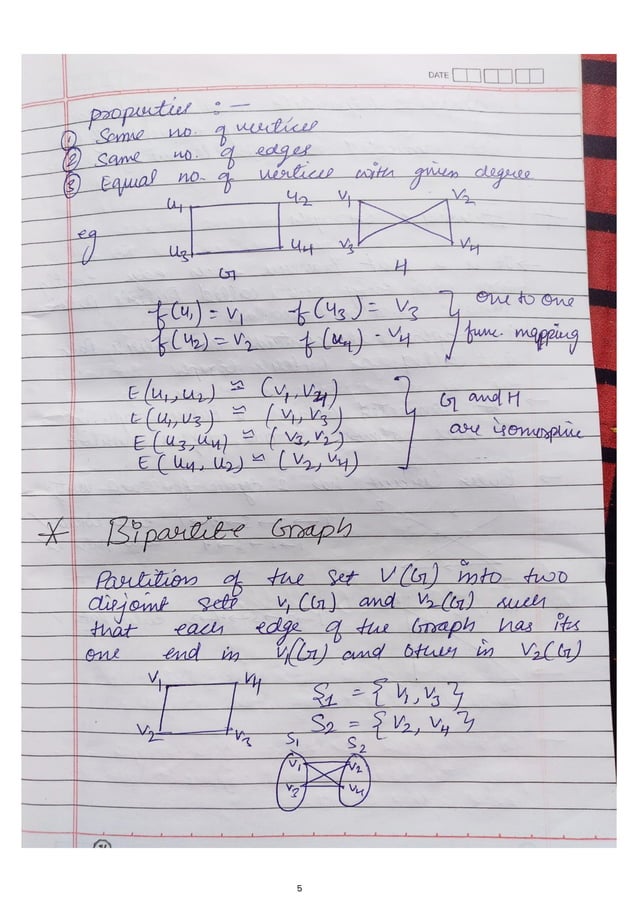 DATE
properties :-
① Same no. of vertices
② Same no. of edges
③ Equal no. of vertices with given degree
eg
u1 u2 v1 v2
u3 u4 v3 v4
G H
f(u1) = v1 f(u3) = v3 one to one
f(u2) = v2 f(u4) - v4 func. mapping
E(u1,u2) ≃ (v1,v4)
E(u1,v3) ≃ (v1,v3) G and H
E(u3,u4) ≃ (v3,v2) are isomorphic
E(u4,u2) ≃ (v2,v4)
* Bipartite Graph
Partition of the set V(G) into two
disjoint sets v1(G) and v2(G) such
that each edge of the Graph has its
one end in V1(G) and other in V2(G)
v1 v4 S1 = {v1,v3}
v2 v3 S2 = {v2,v4}
S1 S2
v1 v2
v3 v4
5